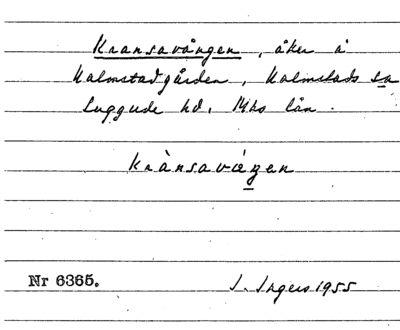 Kransavången, åker å
Kalmstadgården, Kalmstads sn
Luggude hd, Mhs län.
Krànsavæŋen
Nr 6365.
I. Ingers 1955